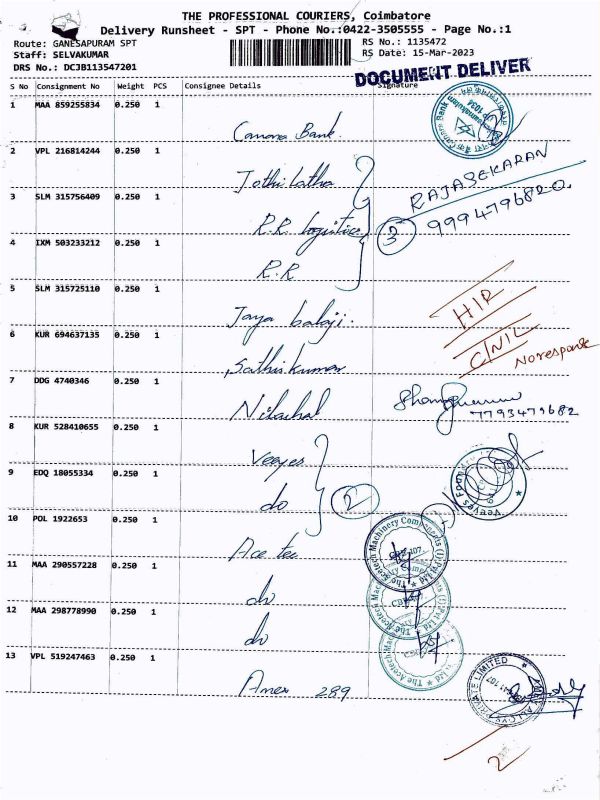 THE PROFESSIONAL COURIERS, Coimbatore
Delivery Runsheet - SPT - Phone No.:0422-3505555 - Page No.:1
Route: GANESAPURAM SPT
RS No.: 1135472
Staff: SELVAKUMAR
RS Date: 15-Mar-2023
DRS No.: DCJB113547201
DOCUMENT DELIVER
S No Consignment No Weight PCS Consignee Details Signature
1 MAA 859255834 0.250 1
Canara Bank.
2 VPL 216814244 0.250 1
Jothi Latha
RAJASEKARAN
3 SLM 315756409 0.250 1
R.R. Logistics
3
9994796820.
4 IXM 503233212 0.250 1
R.R
5 SLM 315725110 0.250 1
Jaya balaji.
HIR
6 KUR 694637135 0.250 1
Sathis kumar
C/NIL
No response
7 DDG 4740346 0.250 1
Nilachal
7793479682
8 KUR 528410655 0.250 1
Veeyes
9 EDQ 18055334 0.250 1
do
2
10 POL 1922653 0.250 1
Ace tec
The Acetech Machinery Components (I) Pvt Ltd
11 MAA 290557228 0.250 1
do
12 MAA 298778990 0.250 1
do
13 VPL 519247463 0.250 1
Amex 289
PRIVATE LIMITED
2